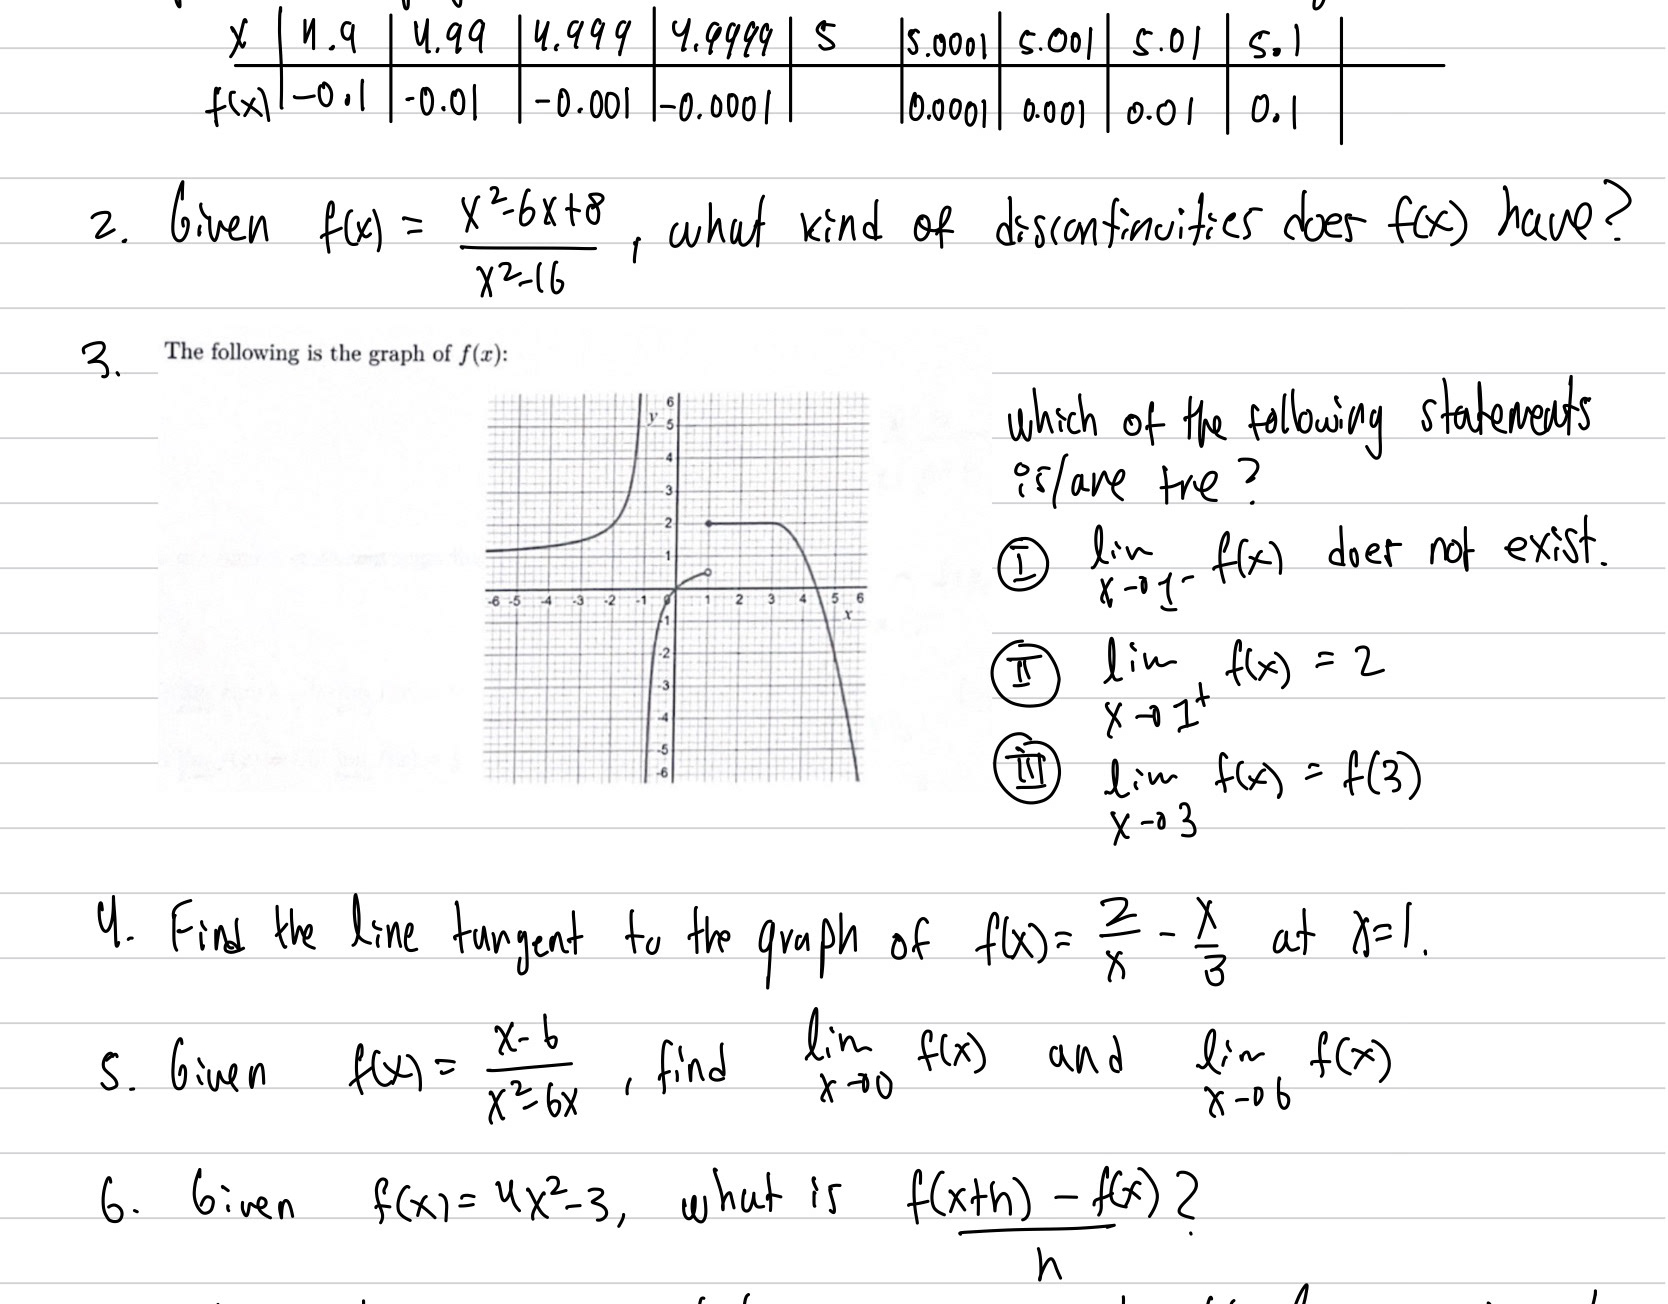 x | 4.9 | 4.99 | 4.999 | 4.9999 | 5 | 5.0001 | 5.001 | 5.01 | 5.1 |
f(x) | -0.1 | -0.01 | -0.001 | -0.0001 | | 0.0001 | 0.001 | 0.01 | 0.1 |
2. Given f(x) = (x²-6x+8)/(x²-16), what kind of discontinuities does f(x) have?
3. The following is the graph of f(x):
6
y 5
4
3
2
1
-6 -5 -4 -3 -2 -1 0 1 2 3 4 5 6
x
-1
-2
-3
-4
-5
-6
which of the following statements
is/are tre?
I lim x→1⁻ f(x) does not exist.
II lim x→1⁺ f(x) = 2
III lim x→3 f(x) = f(3)
4. Find the line tangent to the graph of f(x) = 2/x - x/3 at x=1.
5. Given f(x) = (x-6)/(x²-6x), find lim x→0 f(x) and lim x→6 f(x)
6. Given f(x) = 4x²-3, what is (f(x+h) - f(x))/h ?